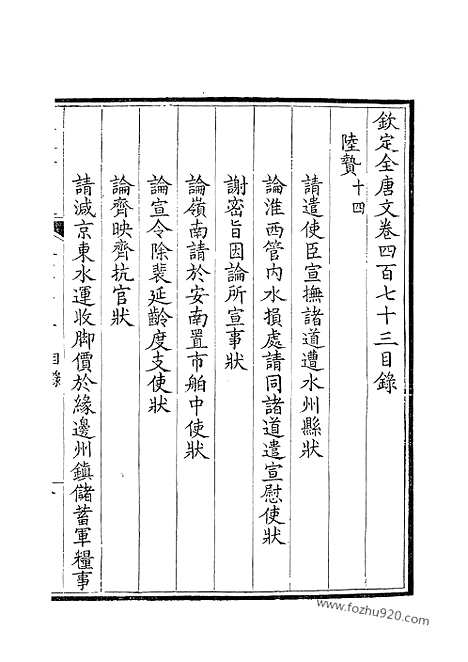 欽定全唐文卷四百七十三目錄
陸贄十四
請遣使臣宣撫諸道遭水州縣狀
論淮西管内水損處請同諸道遣宣慰使狀
謝密旨因論所宣事狀
論嶺南請於安南置市舶中使狀
論宣令除裴延齡度支使狀
論齊映齊抗官狀
請減京東水運收脚價於緣邊州鎮儲蓄軍糧事
目錄
www.fozhu920.com